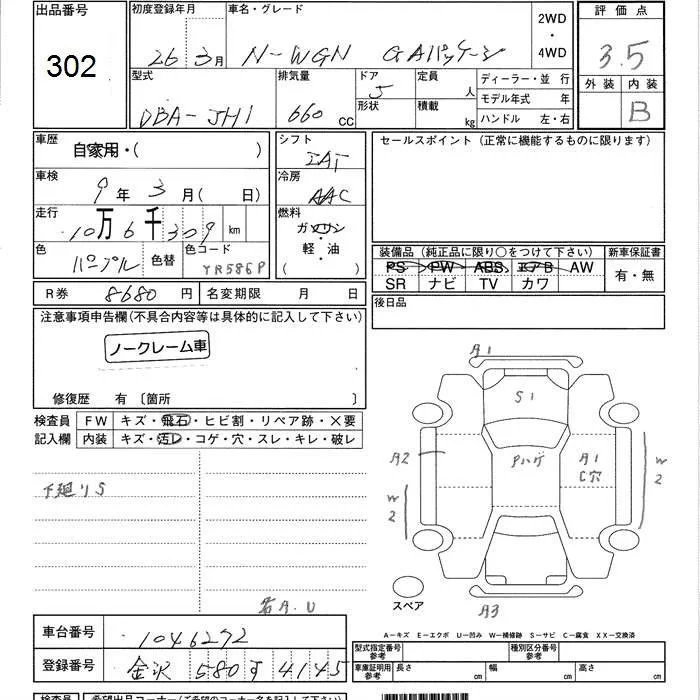 出品番号 初度登録年月 車名・グレード 2WD・4WD 評価点
302 26 3月 N-WGN GAパッケージ 3.5
外装 内装
B
型式 排気量 ドア 定員 人 ディーラー・並行
DBA-JH1 660 CC 5 形状 積載 kg モデル年式 年
ハンドル 左・右
車歴 自家用・( ) シフト IAT セールスポイント (正常に機能するものに限ります)
車検 9年 3月( 日) 冷房 AAC
走行 10万6千309 km 燃料 ガソリン
軽・油
( )
色 パープル 色替 色コード YR586P
装備品 (純正品に限り○をつけて下さい) 新車保証書
PS PW ABS エアB AW 有・無
SR ナビ TV カワ
R券 8680円 名変期限 月 日 後日品
注意事項申告欄(不具合内容等は具体的に記入して下さい)
ノークレーム車
修復歴 有 〔箇所 〕
検査員 FW キズ・飛石・ヒビ割・リペア跡・×要
記入欄 内装 キズ・汚レ・コゲ・穴・スレ・キレ・破レ
A1
S1
A2 Pハゲ A1 W2
C穴
W2
下廻りS
スペア A3
若A.U
A-キズ E-エクボ U-凹み W-補修跡 S-サビ C-腐食 XX-交換済
車台番号 1046272
登録番号 金沢 580す 4145
型式指定番号 参考 種別区分番号 参考
車庫証明用 参考 長さ cm 幅 cm 高さ cm
検査員 希望出品コーナー(ご希望のコーナー名を記入して下さい)